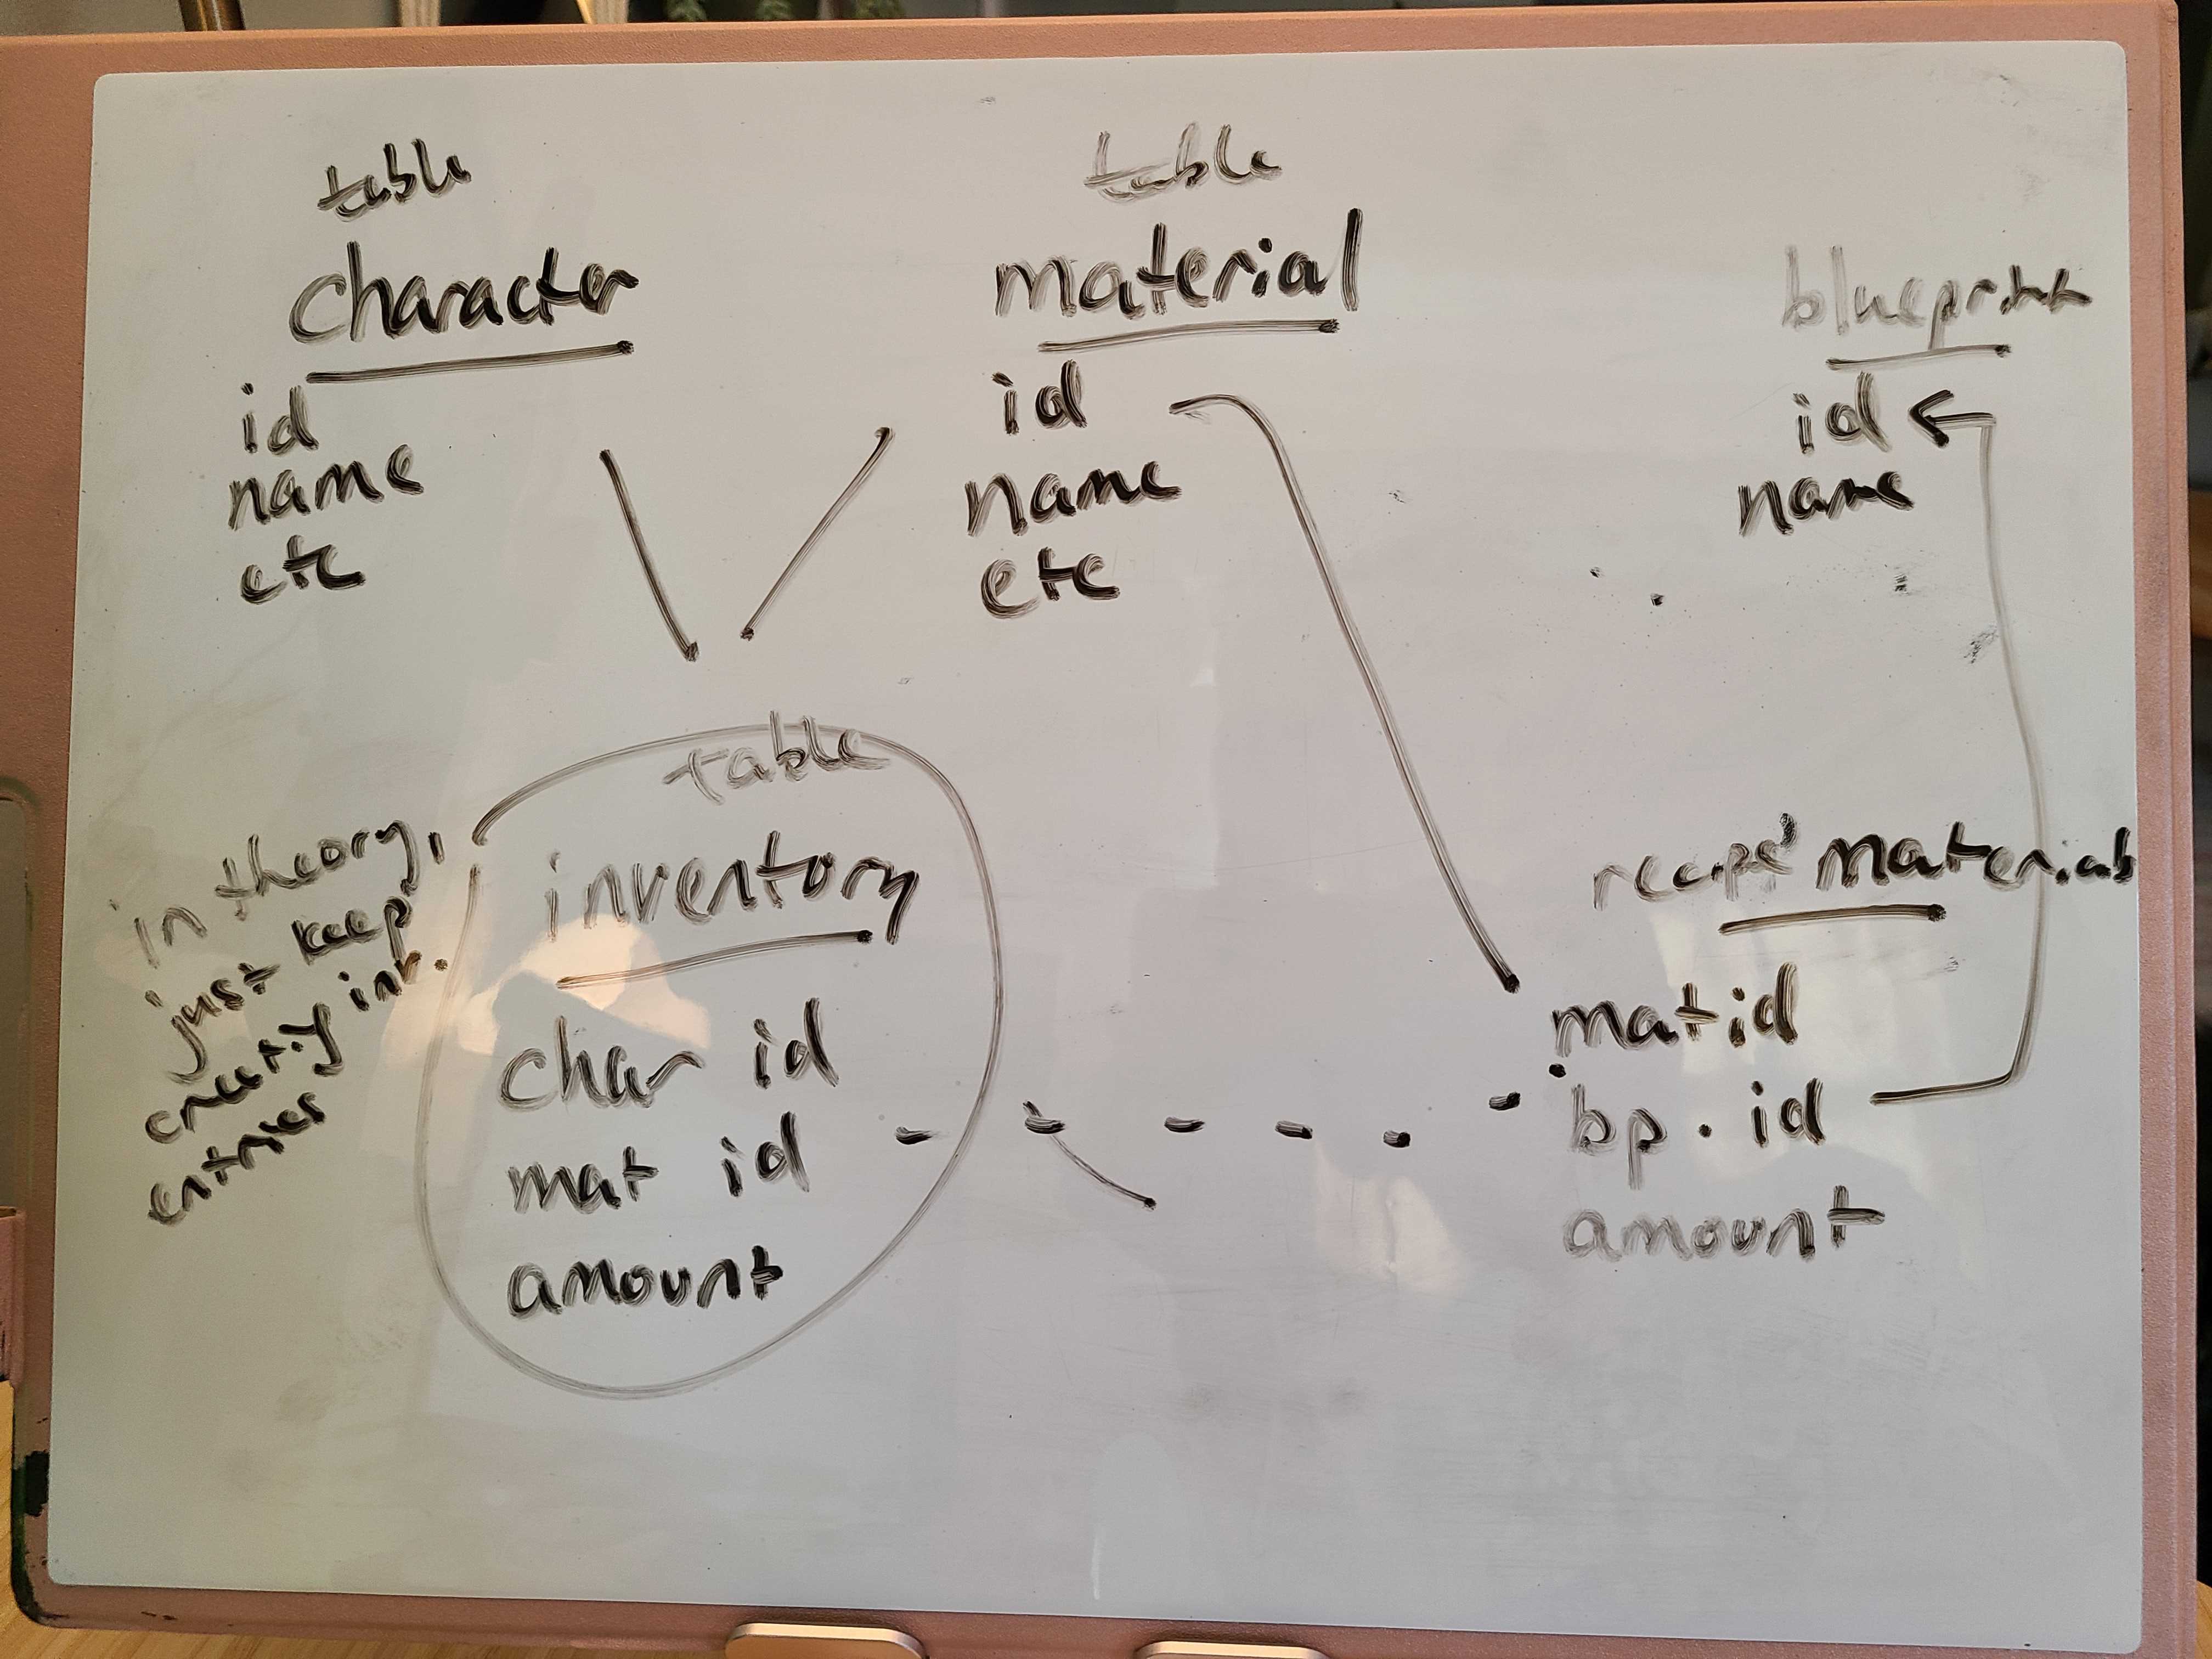 table
character
id
name
etc
table
material
id
name
etc
blueprint
id
name
in theory,
just keep
creatig inv.
entries
table
inventory
char id
mat id
amount
recipe materials
mat id
bp. id
amount